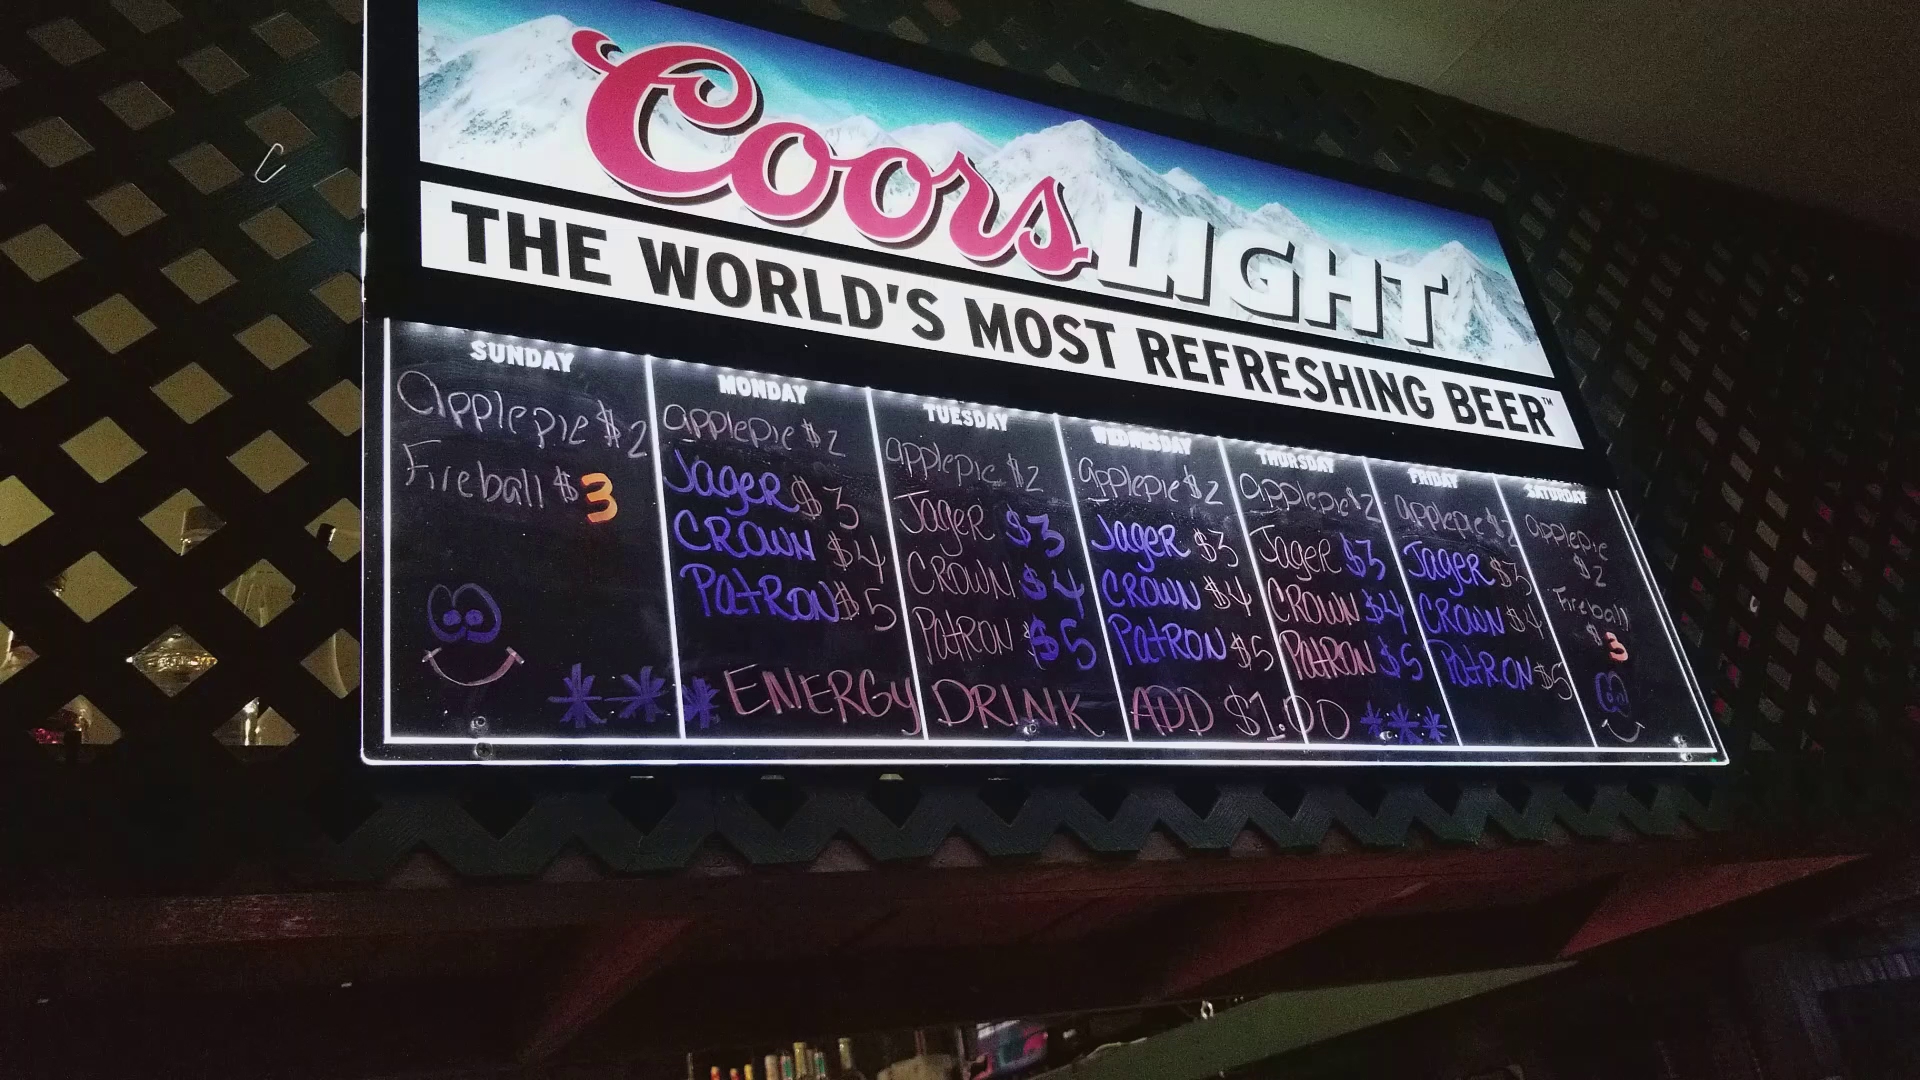 Coors LIGHT
THE WORLD'S MOST REFRESHING BEER™
SUNDAY
applepie $2
Fireball $3
MONDAY
applepie $2
JAGER $3
CROWN $4
PATRON $5
TUESDAY
applepie $2
JAGER $3
CROWN $4
PATRON $5
WEDNESDAY
applepie $2
JAGER $3
CROWN $4
PATRON $5
THURSDAY
applepie $2
JAGER $3
CROWN $4
PATRON $5
FRIDAY
applepie $2
JAGER $3
CROWN $4
PATRON $5
SATURDAY
applepie
$2
Fireball
$3
*** ENERGY DRINK ADD $1.00 ***